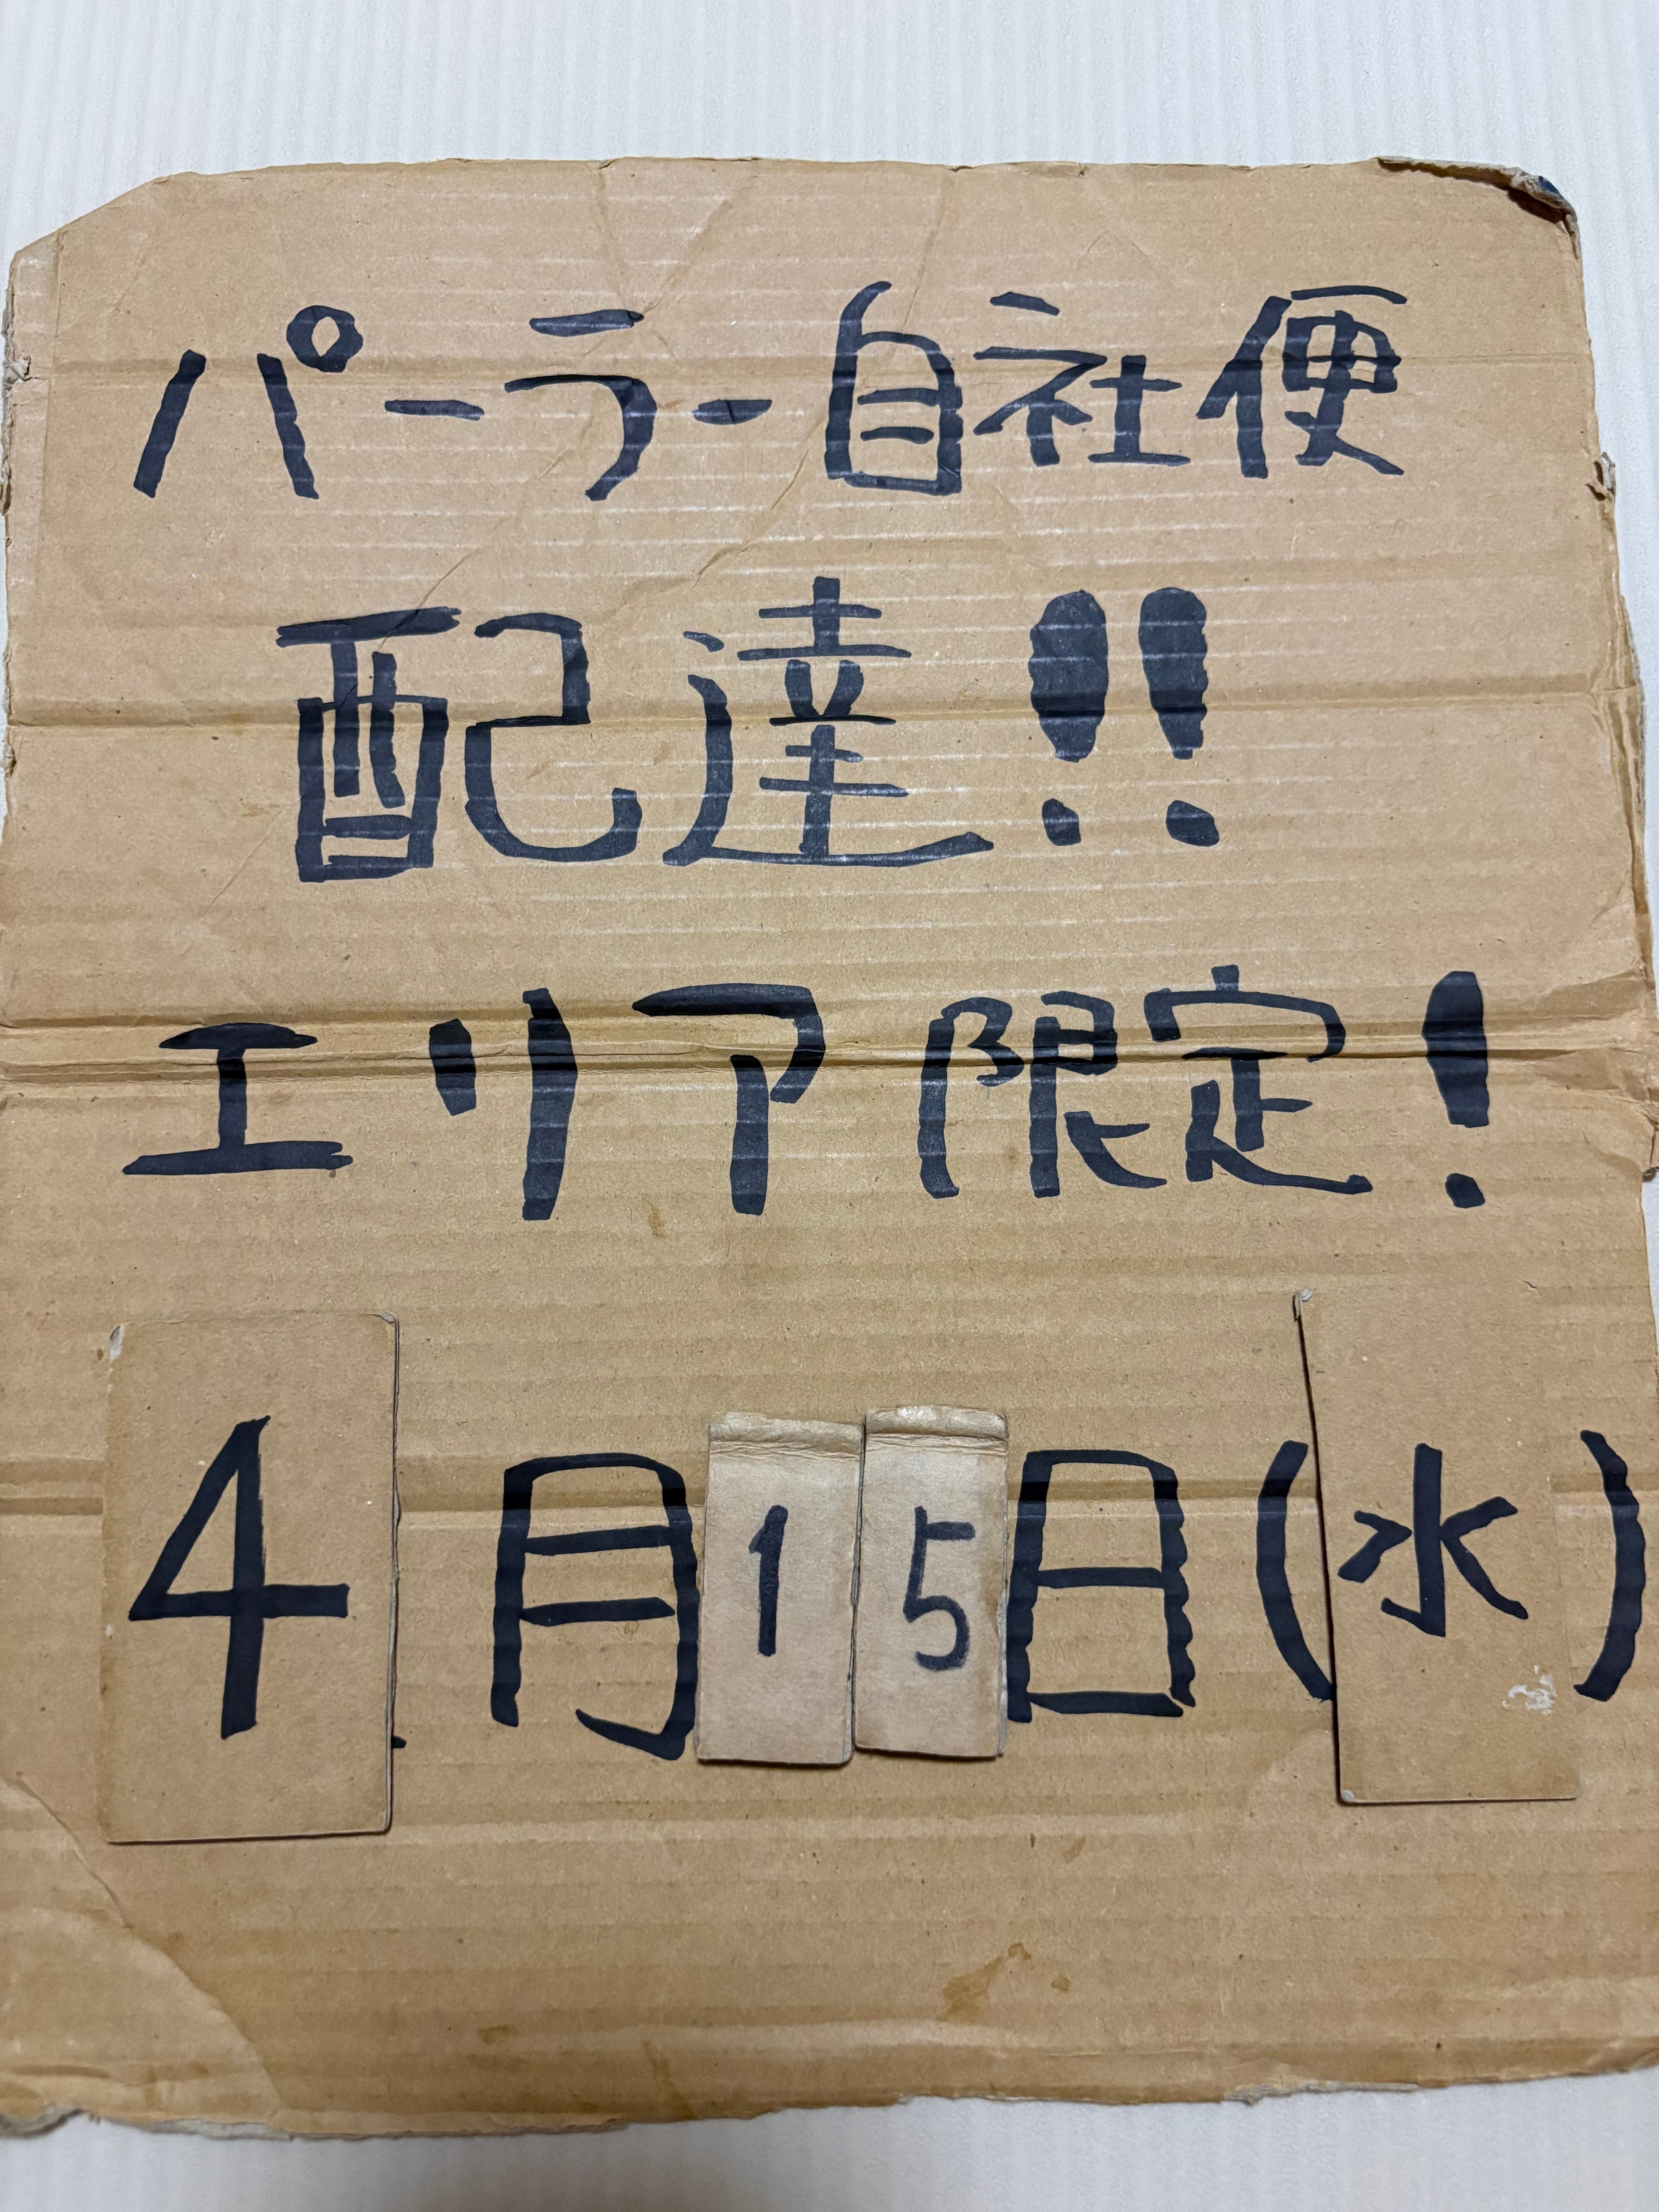 パーラー自社便
配達!!
エリア限定!
4月15日(水)